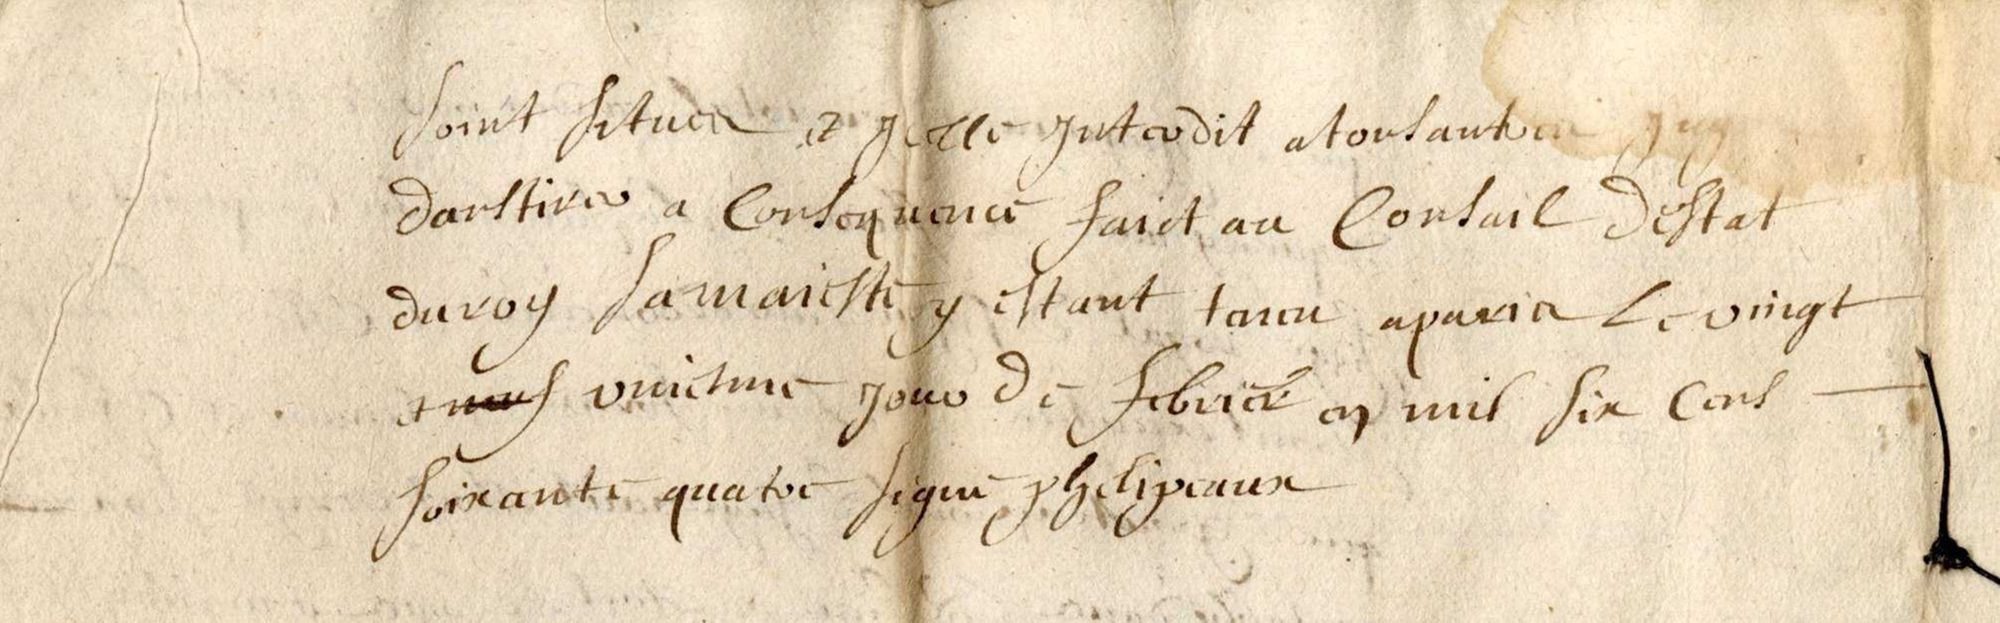 soint situees et Jcelle Jnterdit a tous autres
d'anstirer a Consequence faict au Conseil destat
du roy sa maieste y estant tenu a paris Le vingt
et uniesme Jour de febrier en mil six Cens
soixante quatre signe phelipeaux